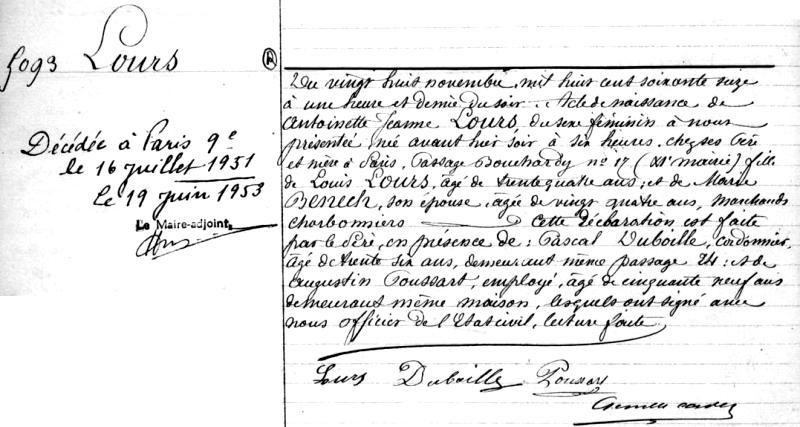 5093 Lours
Décédée à Paris 9e
le 16 juillet 1951
le 19 juin 1953
Le Maire-adjoint,
Du vingt huit novembre, mil huit cent soixante seize
à une heure et demie du soir. Acte de naissance de
Antoinette Jeanne LOURS, du sexe féminin à nous
présentée née avant hier soir à six heures, chez ses Père
et mère à Paris, Passage Bouchardy no 17 (XIe mairie) fille
de Louis LOURS, âgé de trente quatre ans; et de Marie
BENECH, son épouse, âgée de vingt quatre ans, marchands
charbonniers Cette déclaration est faite
par le Père, en présence de: Pascal Duboille, cordonnier,
âgé de trente six ans, demeurant même passage 24: et de
Augustin Poussart, employé, âgé de cinquante neuf ans
demeurant même maison, lesquels ont signé avec
nous officier de l'Etat civil, lecture faite.
Lours Duboille Poussart